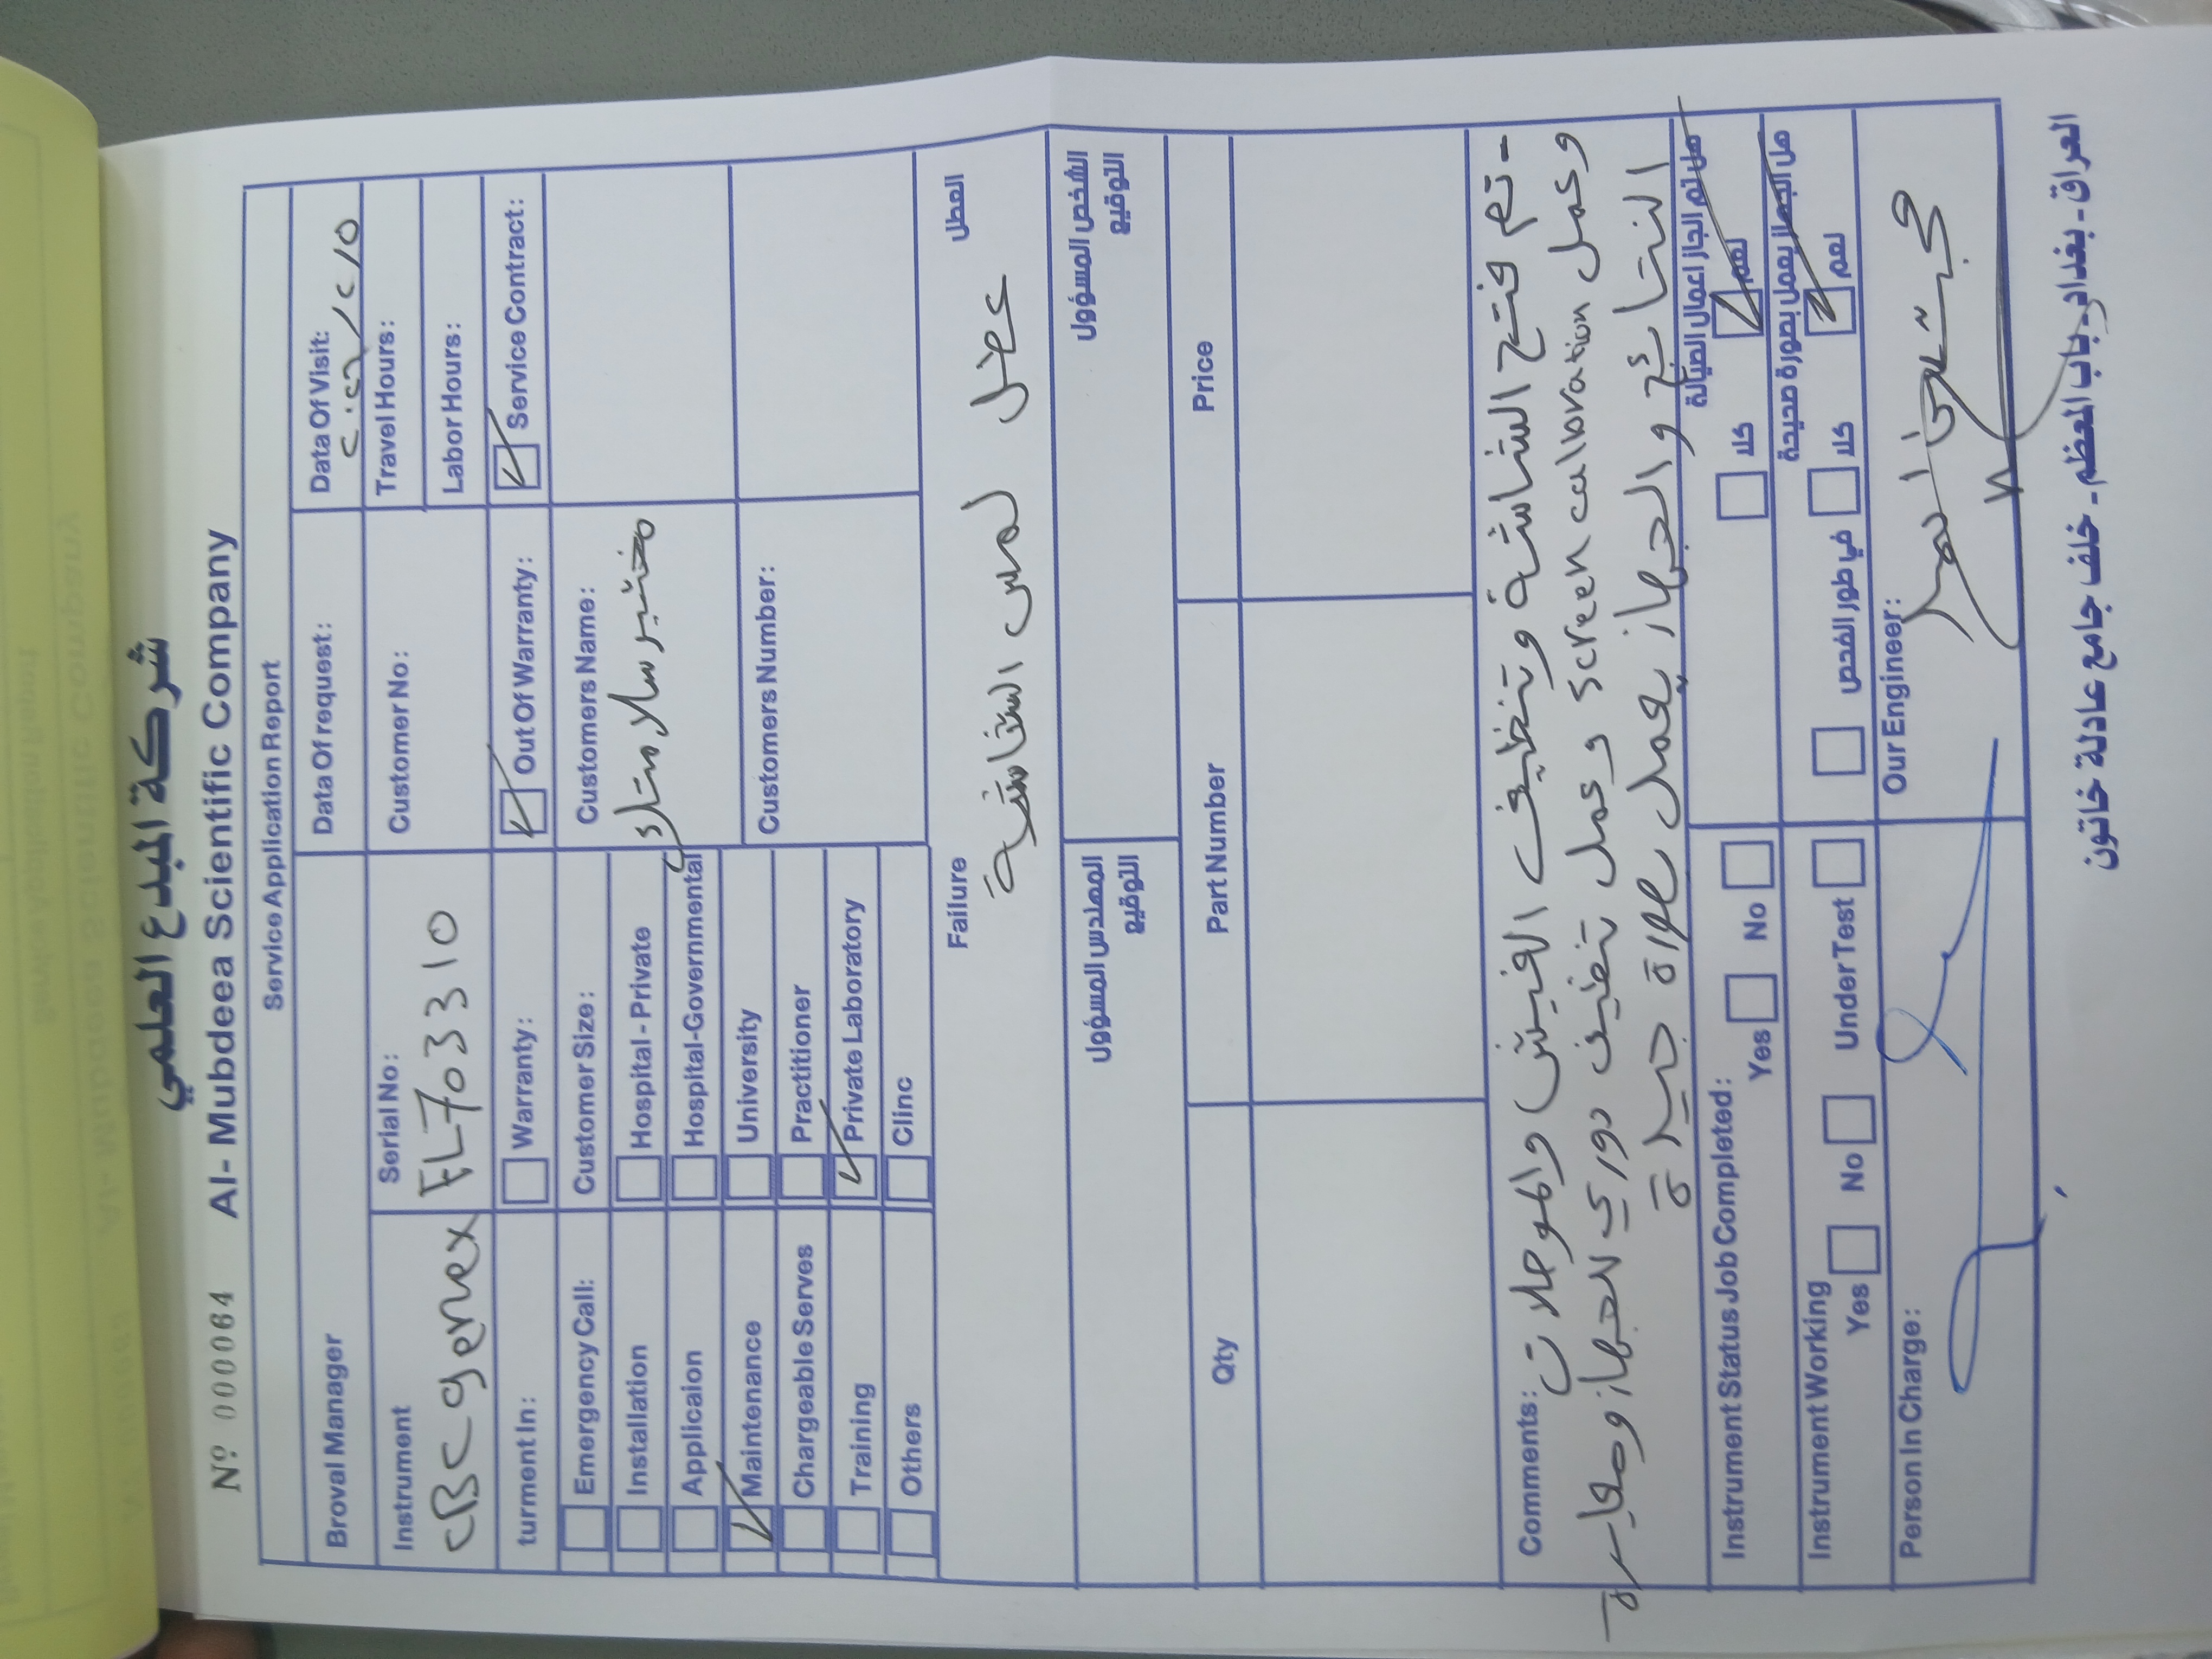 شركة المبدع العلمي
Nº 000064 Al- Mubdeea Scientific Company
Service Application Report
Broval Manager
Data Of request:
Data Of Visit:
Instrument
CBC genex
Serial No:
FL703310
Customer No:
Travel Hours:
Labor Hours:
turment In:
Warranty:
Out Of Warranty:
Service Contract:
Emergency Call:
Installation
Applicaion
Maintenance
Chargeable Serves
Training
Others
Customer Size:
Hospital - Private
Hospital-Governmental
University
Practitioner
Private Laboratory
Clinc
Customers Name:
مختبر سلامتك
Customers Number:
Failure
العطل
عطل لمس الشاشة
المهندس المسؤول
التوقيع
الشخص المسؤول
التوقيع
Qty
Part Number
Price
Comments:
- تم فتح الشاشة وتنظيف الفيش والموصلات
وعمل screen calloration وعمل تنظيف دوري للجهاز ومقارنة
النتائج والجهاز يعمل بصورة جيدة
Instrument Status Job Completed:
Yes No
هل تم انجاز اعمال الصيانة
نعم كلا
Instrument Working
Yes No Under Test
هل الجهاز يعمل بصورة صحيحة
نعم كلا في طور الفحص
Person In Charge:
Our Engineer:
العراق - بغداد - باب المعظم - خلف جامع عادلة خاتون